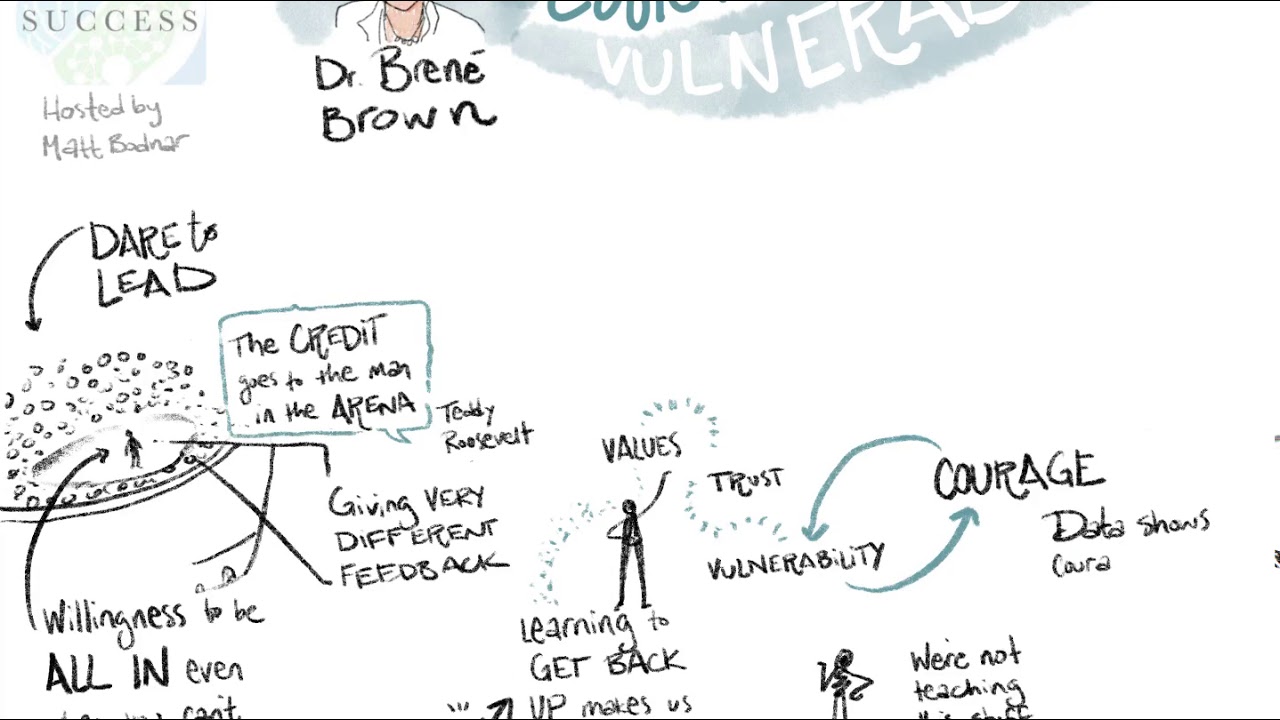 SUCCESS
Hosted by
Matt Bodnar
Dr. Brené
Brown
VULNERA
DARE to
LEAD
The CREDIT
goes to the man
in the ARENA
Teddy
Roosevelt
Giving VERY
DIFFERENT
FEEDBACK
Willingness to be
ALL IN even
can't
VALUES
TRUST
VULNERABILITY
COURAGE
Data shows
Coura
Learning to
GET BACK
UP makes us
We're not
teaching
this stuff